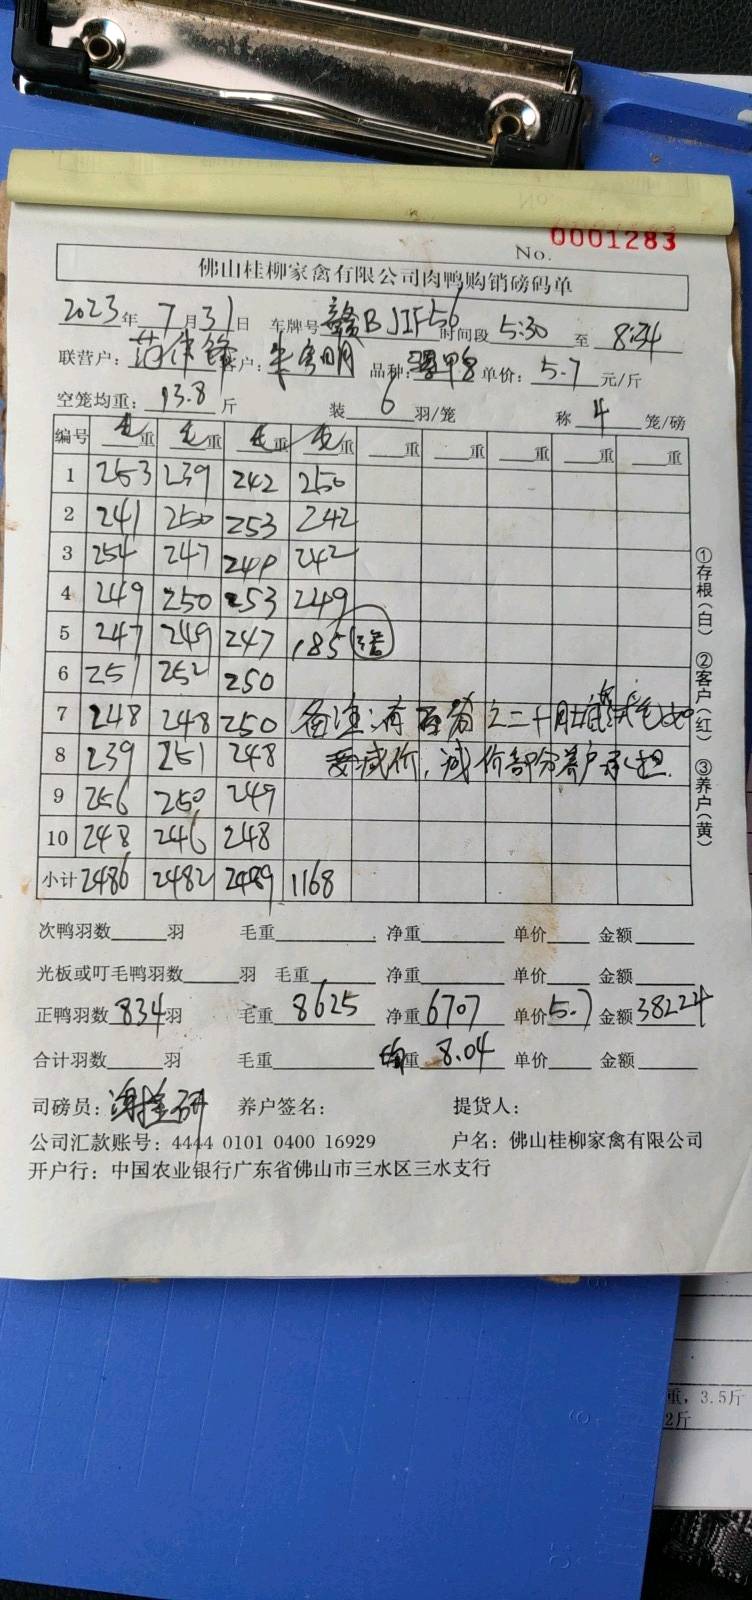 No. 0001283
佛山桂柳家禽有限公司肉鸭购销磅码单
2023年 7月31日 车牌号 赣BJIF56 时间段 5:30 至 8:34
联营户: 客户: 朱 明 品种: 单价: 5.7 元/斤
空笼均重: 13.8 斤 装 6 羽/笼 称 4 笼/磅
编号 毛重 毛重 毛重 毛重 重 重 重 重 重
1 253 239 242 250
2 241 250 253 242
3 254 247 249 242
4 249 250 253 249
5 247 249 247 185 3笼
6 251 252 250
7 248 248 250 备注:有百分之二十
8 239 251 248 减价,减价部分养户承担.
9 256 250 249
10 248 246 248
小计 2486 2482 2489 1168
①存根(白) ②客户(红) ③养户(黄)
次鸭羽数 羽 毛重 净重 单价 金额
光板或叮毛鸭羽数 羽 毛重 净重 单价 金额
正鸭羽数 834羽 毛重 8625 净重 6707 单价 5.7 金额 38224
合计羽数 羽 毛重 均重 8.04 单价 金额
司磅员: 养户签名: 提货人:
公司汇款账号: 4444 0101 0400 16929 户名: 佛山桂柳家禽有限公司
开户行: 中国农业银行广东省佛山市三水区三水支行
重, 3.5斤
2斤